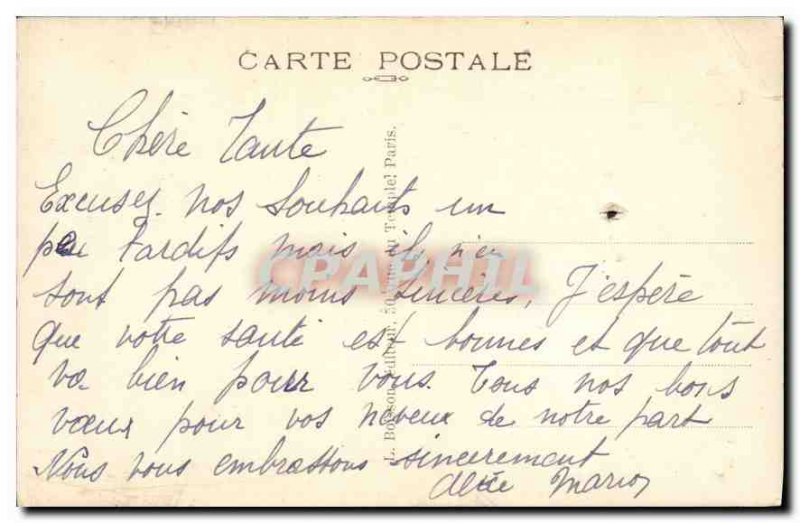 CARTE POSTALE
Chère Tante
Excusez nos souhaits un
peu tardifs mais ils n'en
sont pas moins sincères, J'espère
que votre santé est bonnes et que tout
va bien pour vous. Tous nos bons
vœux pour vos neveux de notre part
Nous vous embrassons sincerement
Marion
du Temple, Paris.
CPAPHIL